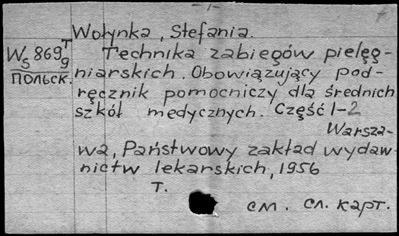 -1-
Wołynka, Stefania.
W 869 T
S 9
польск.
Technika zabiegów pielęg-
niarskich. Obowiązujący pod-
ręcznik pomocniczy dla średnich
szkół medycznych. Część 1-2
Warsza-
wa, Państwowy zakład wydaw-
nictw lekarskich, 1956
т.
см. сл. карт.